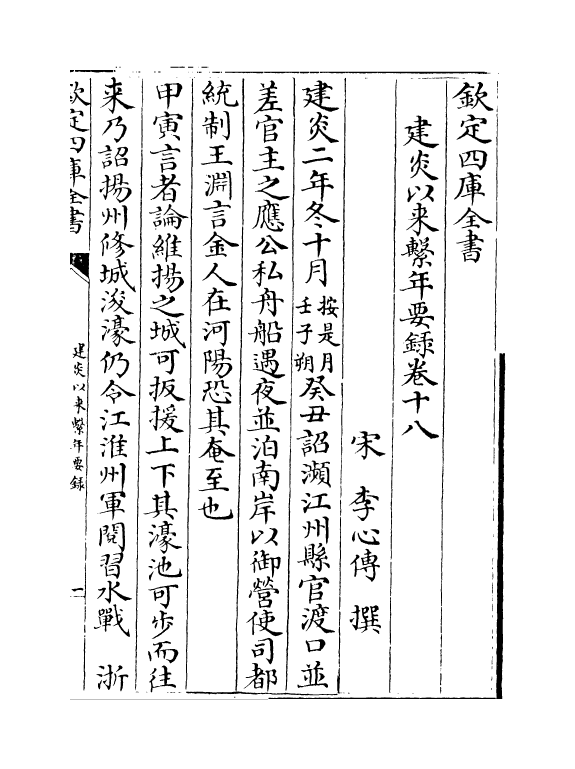 欽定四庫全書
建炎以来繫年要録巻十八
宋　李心傳　撰
建炎二年冬十月按是月壬子朔癸丑詔瀕江州縣官渡口並
差官主之應公私舟船遇夜並泊南岸以御營使司都
統制王淵言金人在河陽恐其奄至也
甲寅言者論維揚之城可扳援上下其濠池可歩而往
来乃詔揚州修城浚濠仍令江淮州軍閱習水戰　浙
欽定四庫全書
建炎以来繫年要録
一